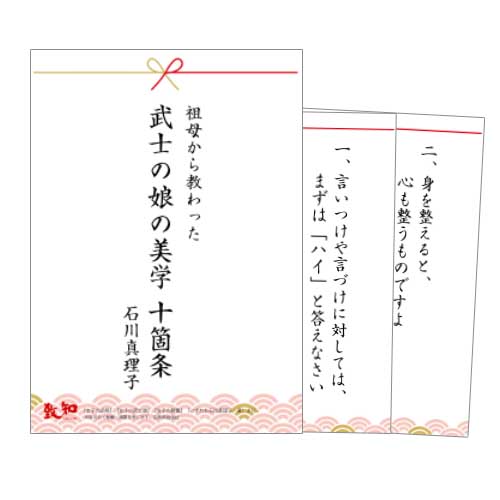 祖母から教わった
武士の娘の美学 十箇条
石川真理子
致知
一、言いつけや言づけに対しては、
まずは「ハイ」と答えなさい
二、身を整えると、
心も整うものですよ